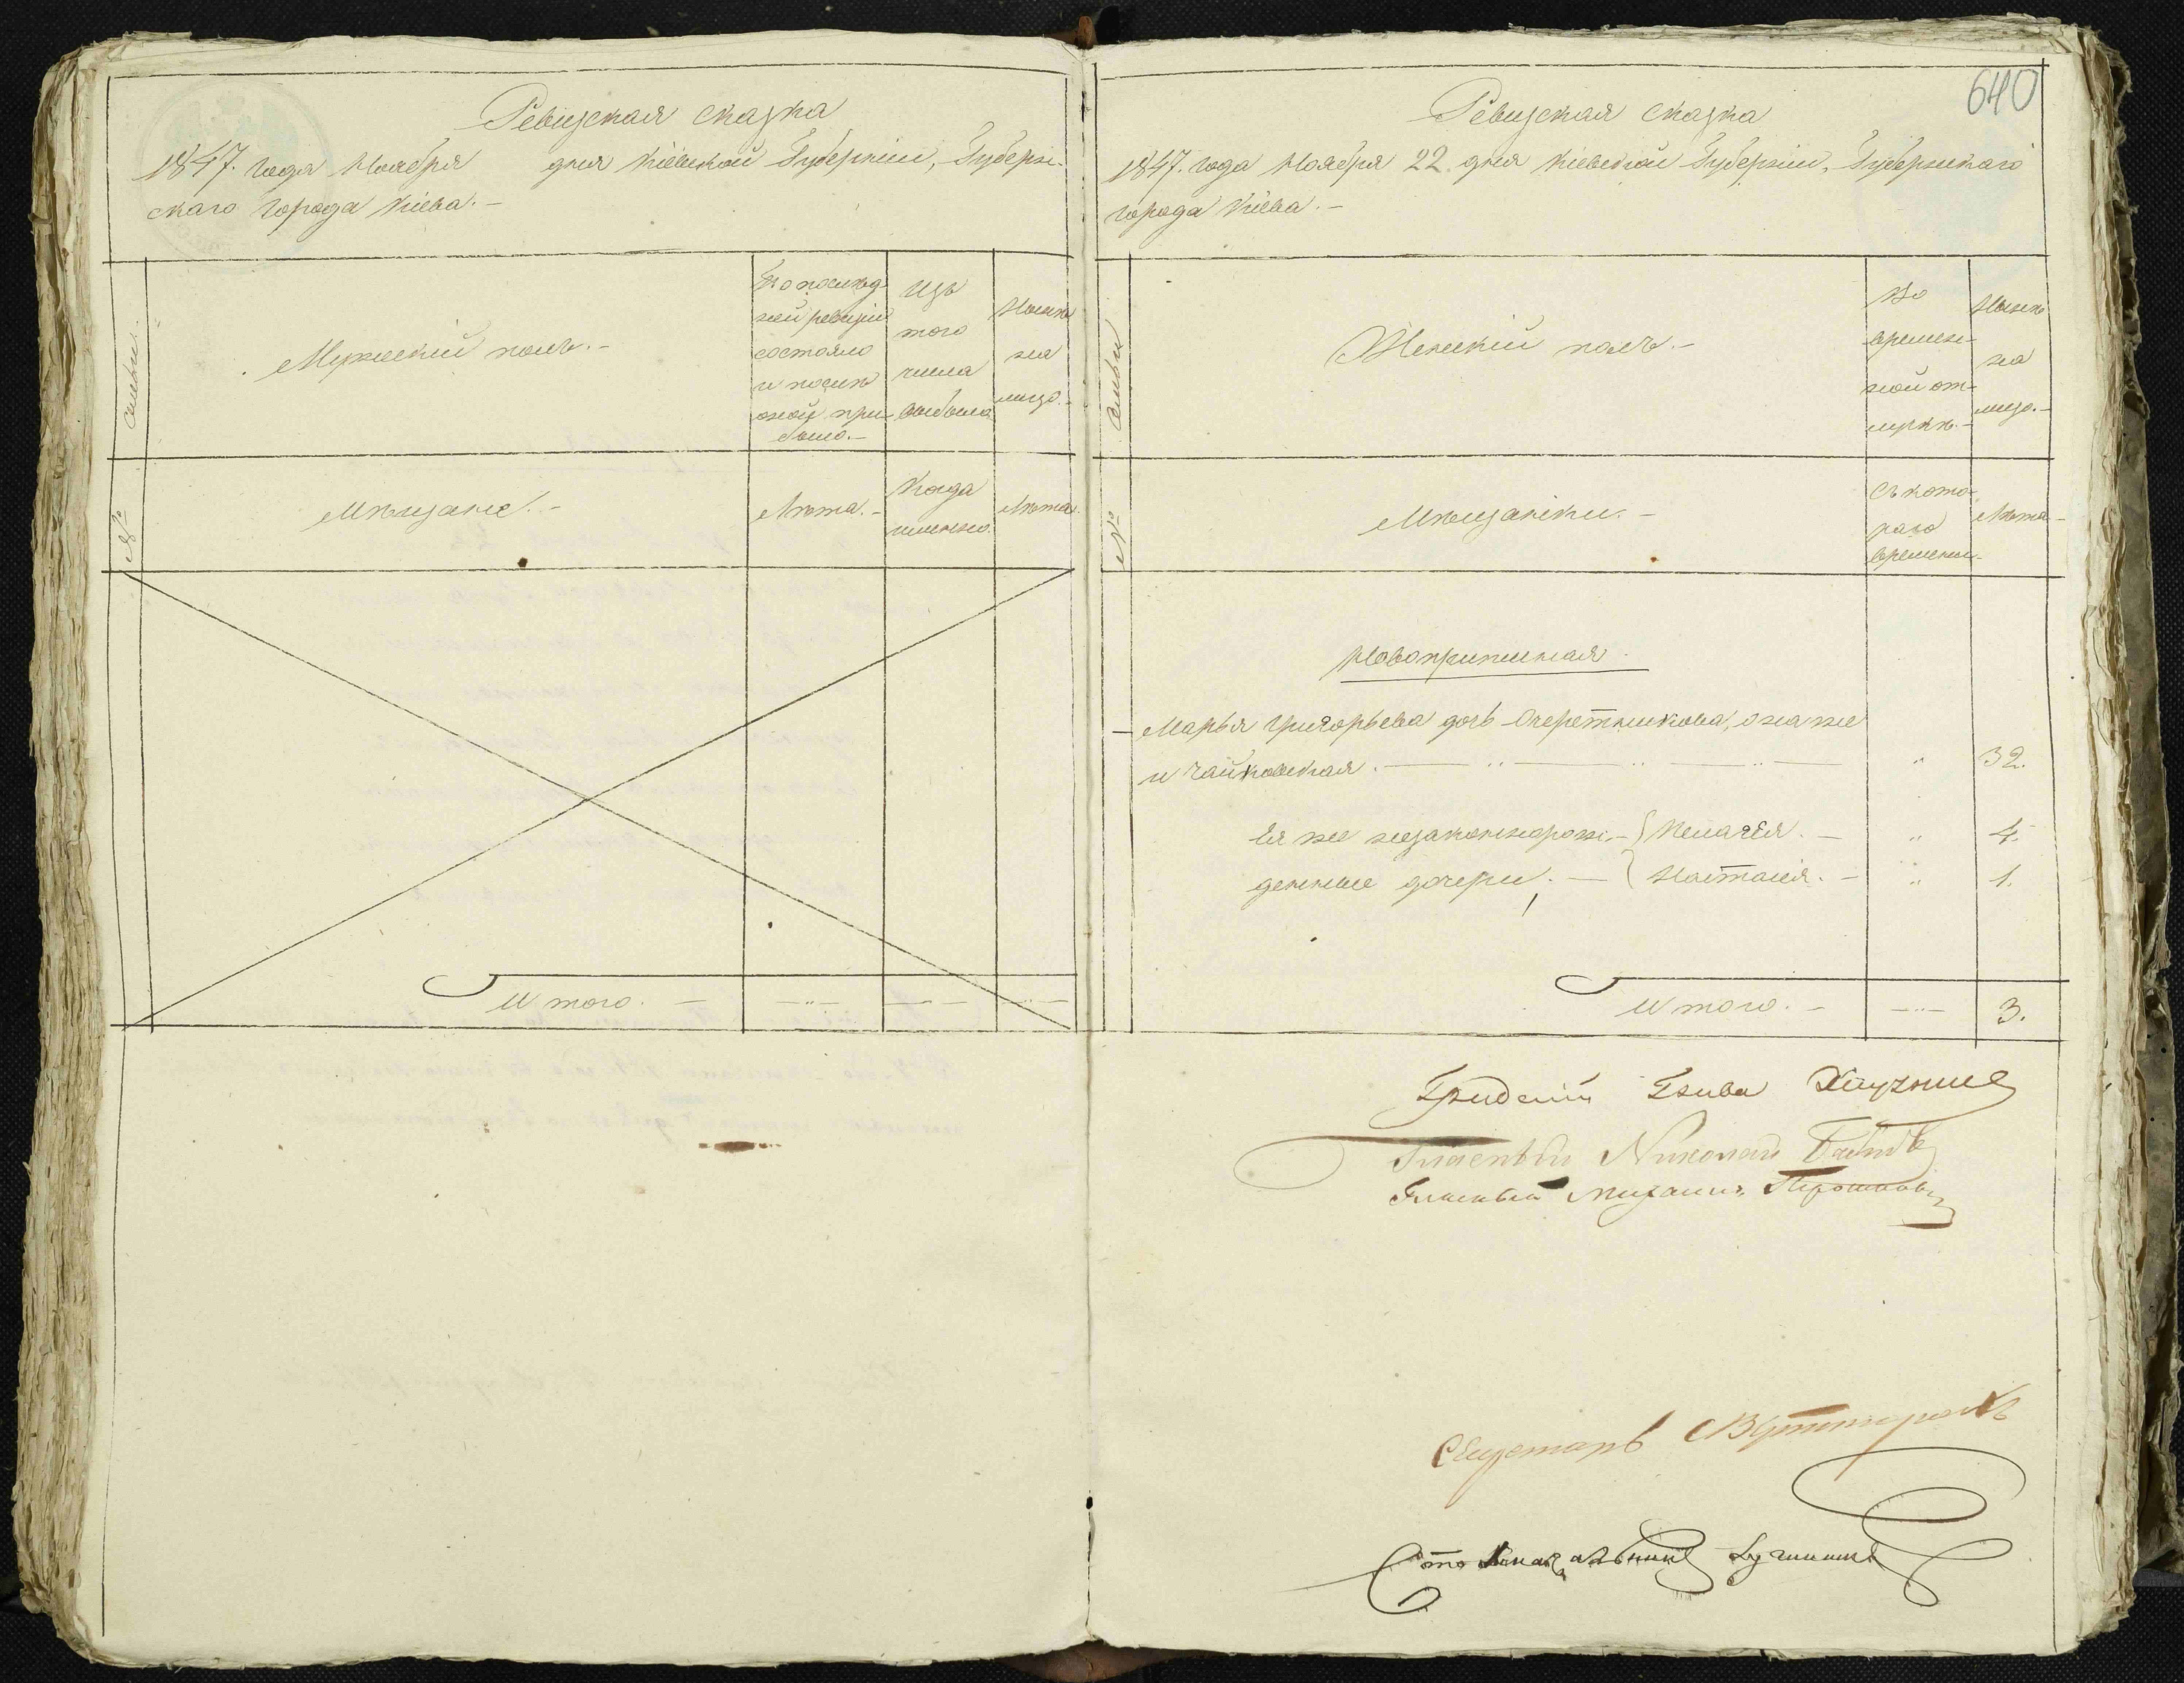 Ревизская сказка
1847. года Ноября дня Кіевской Губерніи, Губерн-
скаго города Кіева.-
№ семьи.
Мужескій полъ.-
По послѣд-
ней ревизіи
состояло
и послѣ
оной при-
было.-
Изъ
того
числа
выбыло.
Нынѣ
на
лицо.-
Мѣщане.-
Лѣта.-
Когда
именно.
Лѣта.
Итого.-
640
Ревизская сказка
1847. года Ноября 22 дня Кіевской Губерніи, Губернскаго
города Кіева.-
№ семьи
Женскій полъ.-
Во
времен-
ной от-
лучкѣ.-
Нынѣ
на
лицо.-
Мѣщанки.-
Съ кото-
раго
времени.
Лѣта-
Новоприписная.
Марья Григорьева дочь Очеретникова, она же
и Чайковская. " 32.
Ея же незаконнорож- Пелагея.- " 4.
денные дочери.- Настасія.- " 1.
Итого.- -"- 3.
Гласный Николай
Гласный Михаилъ
Секретарь
Столоначальникъ